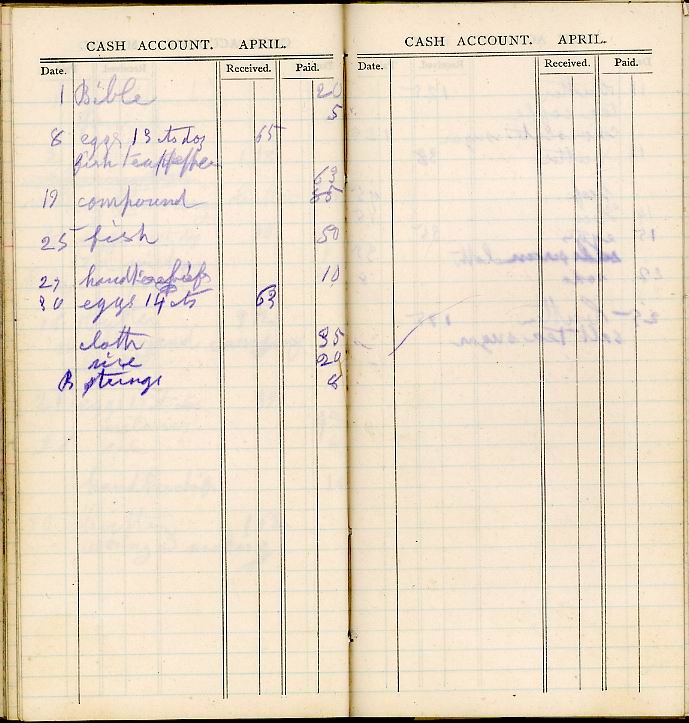 CASH ACCOUNT. APRIL.
Date. Received. Paid.
1 Bible 20
5
8 eggs 13 cts doz 65
fish tea pepper
63
19 compound 85
25 fish 50
27 handkerchiefs 10
30 eggs 14 cts 63
cloth 35
rice 20
strings 8
CASH ACCOUNT. APRIL.
Date. Received. Paid.